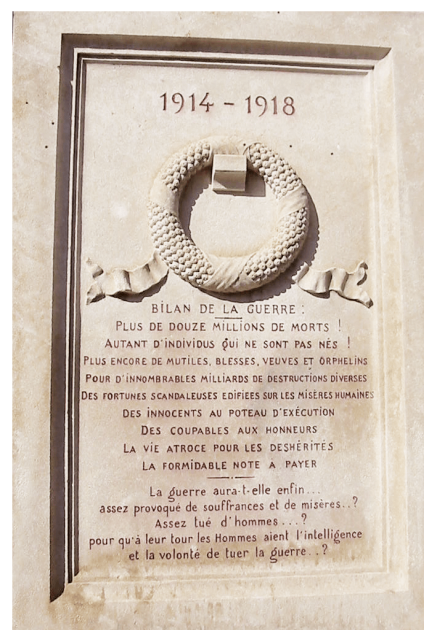 1914 - 1918
BILAN DE LA GUERRE :
PLUS DE DOUZE MILLIONS DE MORTS !
AUTANT D'INDIVIDUS QUI NE SONT PAS NÉS !
PLUS ENCORE DE MUTILES, BLESSES, VEUVES ET ORPHELINS
POUR D'INNOMBRABLES MILLIARDS DE DESTRUCTIONS DIVERSES
DES FORTUNES SCANDALEUSES EDIFIEES SUR LES MISÈRES HUMAINES
DES INNOCENTS AU POTEAU D'EXÉCUTION
DES COUPABLES AUX HONNEURS
LA VIE ATROCE POUR LES DESHÉRITÉS
LA FORMIDABLE NOTE A PAYER
La guerre aura-t-elle enfin...
assez provoqué de souffrances et de misères..?
Assez tué d'hommes...?
pour qu'à leur tour les Hommes aient l'intelligence
et la volonté de tuer la guerre..?